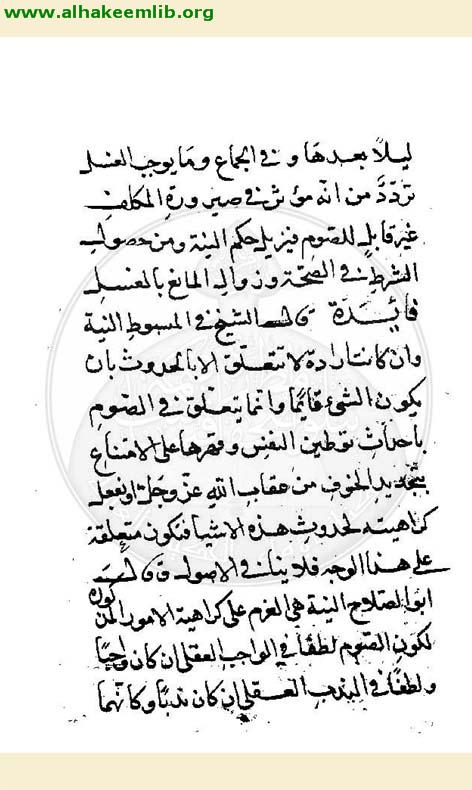 www.alhakeemlib.org
ليلا بعدها و في الجماع وما يوجب الغسل
تردّد من انه مؤثر في صيرورة المكلف
غير قابل للصوم فيزيل حكم النية ومن حصول
الشرط في الصحة وزوال المانع بالغسل
فايدة قال الشيخ في المبسوط النية
وان كانت ارادة لا تتعلق الا بالحدوث بان
يكون الشيء قايما وانما يتعلق في الصوم
باحداث توطين النفس وقهرها على الامتناع
بتجديد الخوف من عقاب الله عزّ وجلّ او نفعل
كراهية لحدوث هذه الاشيا فتكون متعلقة
على هذا الوجه فلا ينافي الاصول وقال
ابو الصلاح النية هي العزم على كراهية الامور
لكون الصوم لطفا في الواجب العقلي ان كان واجبا
ولطفا في الندب العقلي ان كان ندبا وكانهما